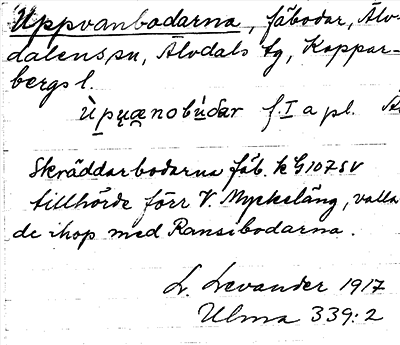 Uppvanbodarna, fäbodar, Älv-
dalens sn, Älvdals tg, Koppar-
bergs l.
f. I a pl.
Skräddarbodarna fäb. k G107SV
tillhörde förr V. Myckeläng, valla
de ihop med Ransibodarna.
L. Levander 1917
Ulma 339:2